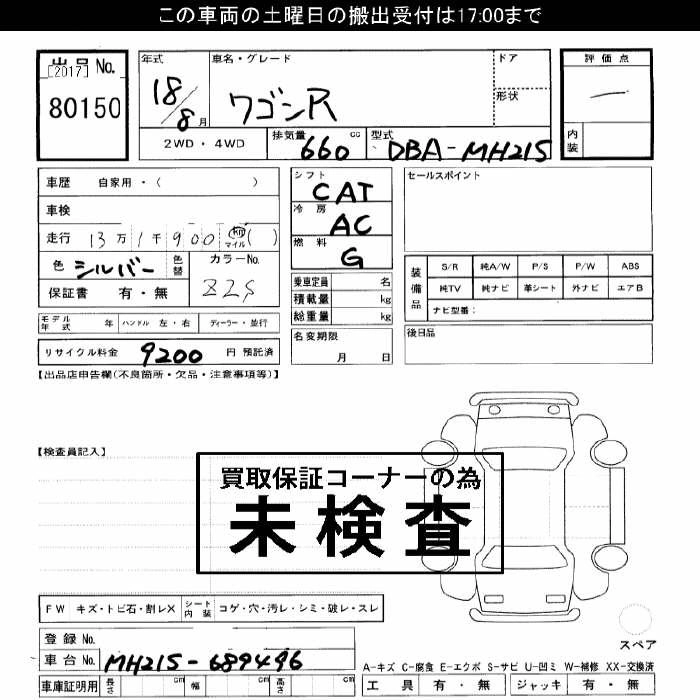 この車両の土曜日の搬出受付は17:00まで
出品 No. [2017]
80150
年式 18/8月
車名・グレード ワゴンR
ドア
形状
評価点 —
内装
2WD・4WD
排気量 660 cc
型式 DBA-MH21S
車歴 自家用・( )
車検
走行 13万1千900 km マイル ( )
色 シルバー 色替
カラーNo. Z2S
保証書 有・無
シフト CAT
冷房 AC
燃料 G
乗車定員 名
積載量 kg
総重量 kg
名変期限 月 日
セールスポイント
装備品
S/R 純A/W P/S P/W ABS
純TV 純ナビ 革シート 外ナビ エアB
ナビ型番:
後日品
モデル年式 年 ハンドル 左・右 ディーラー・並行
リサイクル料金 9200 円 預託済
【出品店申告欄(不良箇所・欠品・注意事項等)】
【検査員記入】
買取保証コーナーの為
未検査
FW キズ・トビ石・割レX シート内装 コゲ・穴・汚レ・シミ・破レ・スレ
登録 No.
車台 No. MH21S-689496
車庫証明用 長さ cm 幅 cm 高さ cm
スペア
A-キズ C-腐食 E-エクボ S-サビ U-凹ミ W-補修 XX-交換済
工具 有・無 ジャッキ 有・無